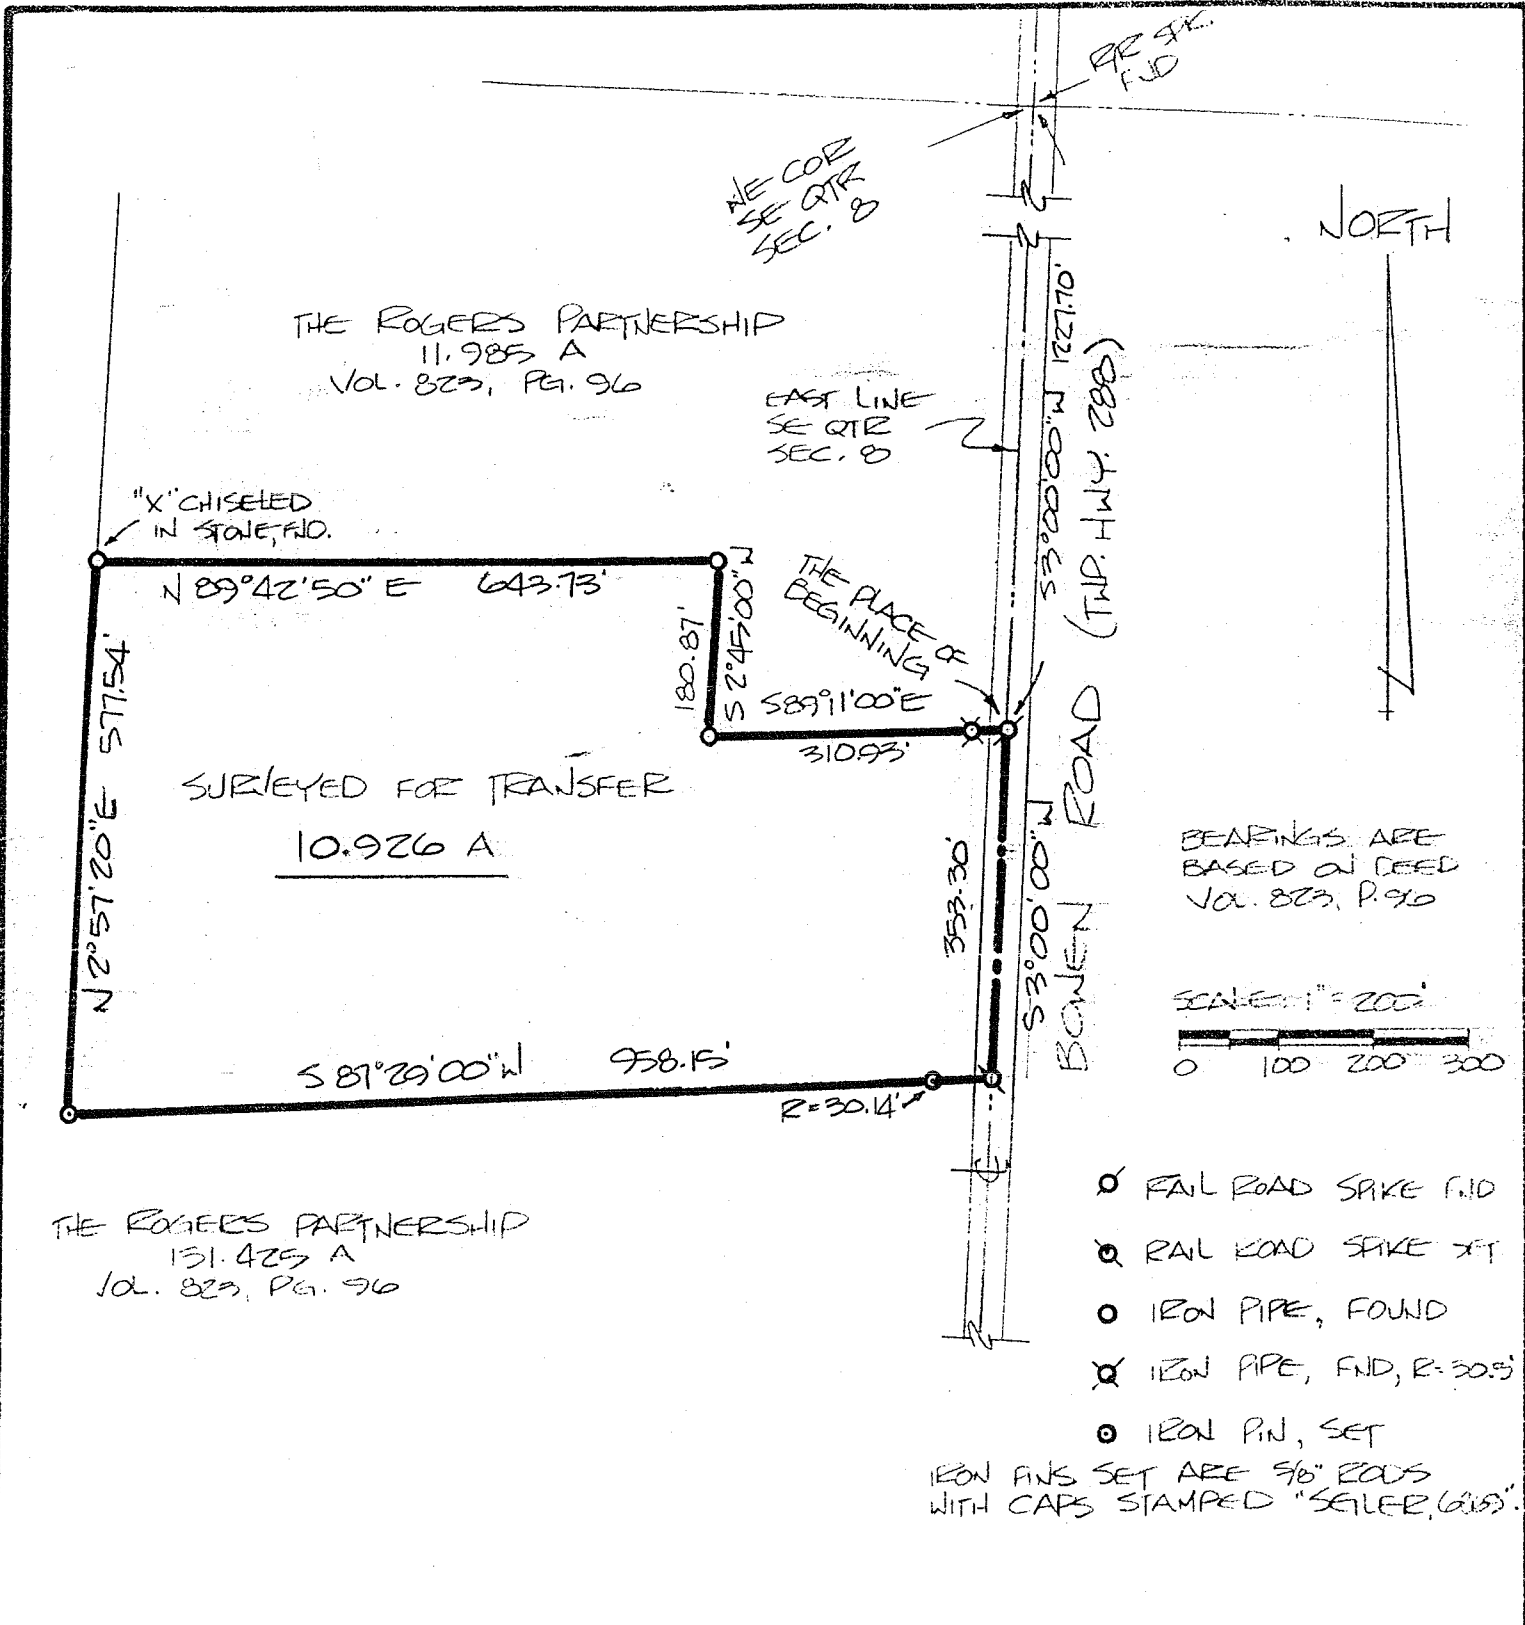 RR SPK.
FND
NE COR
SE QTR
SEC. 8
NORTH
THE ROGERS PARTNERSHIP
11.985 A
VOL. 823, PG. 96
EAST LINE
SE QTR
SEC. 8
S 3°00'00" W 1227.70'
"X" CHISELED
IN STONE, FND.
N 89°42'50" E 643.73'
180.87'
S 2°45'00" W
THE PLACE OF
BEGINNING
S 89°11'00" E
310.93'
N 2°57'20" E 577.54'
SURVEYED FOR TRANSFER
10.926 A
353.30'
S 3°00'00" W
BOWEN ROAD (TWP. HWY. 288)
BEARINGS ARE
BASED ON DEED
VOL. 823, P. 96
SCALE: 1" = 200'
0 100 200 300
S 87°29'00" W 958.15'
R=30.14'
THE ROGERS PARTNERSHIP
131.425 A
VOL. 823, PG. 96
RAIL ROAD SPIKE FND
RAIL ROAD SPIKE SET
IRON PIPE, FOUND
IRON PIPE, FND, R=30.5'
IRON PIN, SET
IRON PINS SET ARE 5/8" RODS
WITH CAPS STAMPED "SEILER,